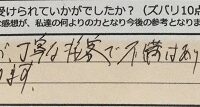 受けられていかがでしたか？（ズバリ10点
な感想が、私達の何よりの力となり今後の参考となりま
丁寧な接客で不満はあり
ます。